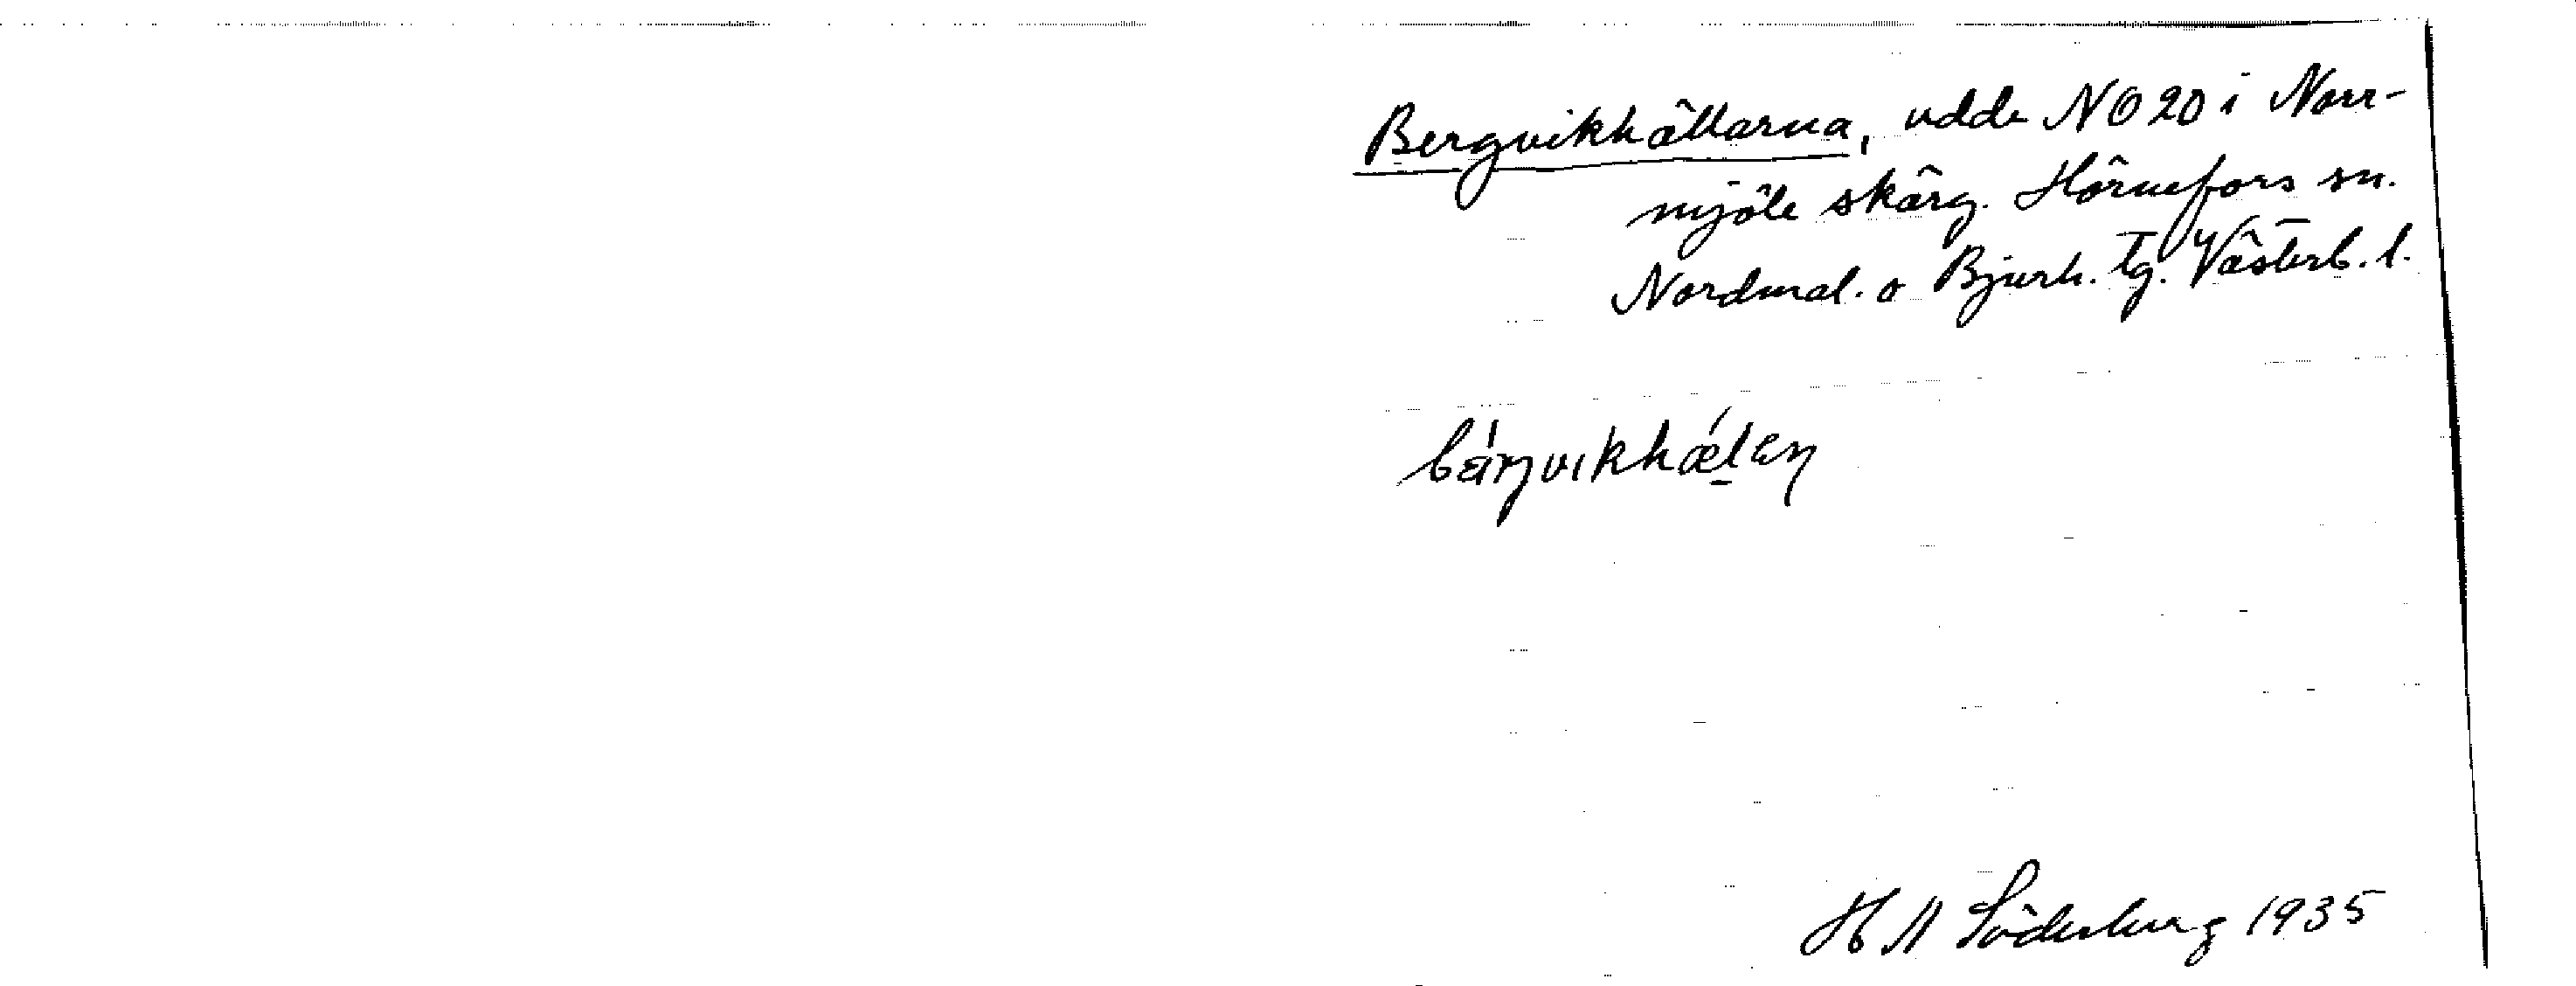 Bergvikhällarna, udde NO 20 i Norr-
mjöle skärg. Hörnefors sn.
Nordmal. o Bjurh. tg. Västerb. l.
H A Söderberg 1935